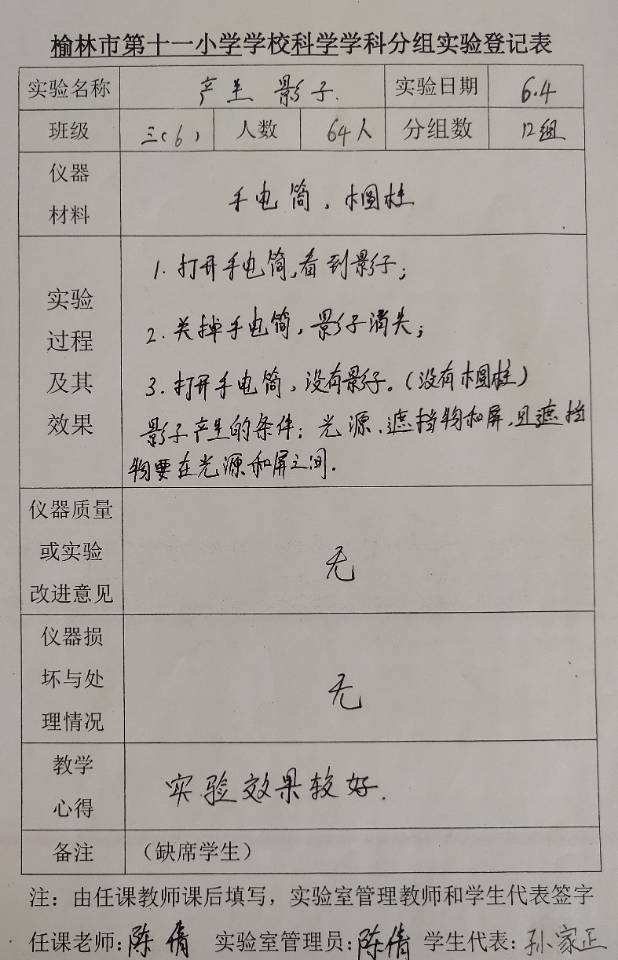 榆林市第十一小学学校科学学科分组实验登记表
实验名称 产生影子. 实验日期 6.4
班级 三(6) 人数 64人 分组数 12组
仪器
材料
手电筒、木圆柱
实验
过程
及其
效果
1. 打开手电筒,看到影子;
2. 关掉手电筒,影子消失;
3. 打开手电筒,没有影子。(没有木圆柱)
影子产生的条件:光源、遮挡物和屏,且遮挡
物要在光源和屏之间.
仪器质量
或实验
改进意见
无
仪器损
坏与处
理情况
无
教学
心得
实验效果较好.
备注 (缺席学生)
注:由任课教师课后填写,实验室管理教师和学生代表签字
任课老师:陈倩 实验室管理员:陈倩 学生代表:孙家正